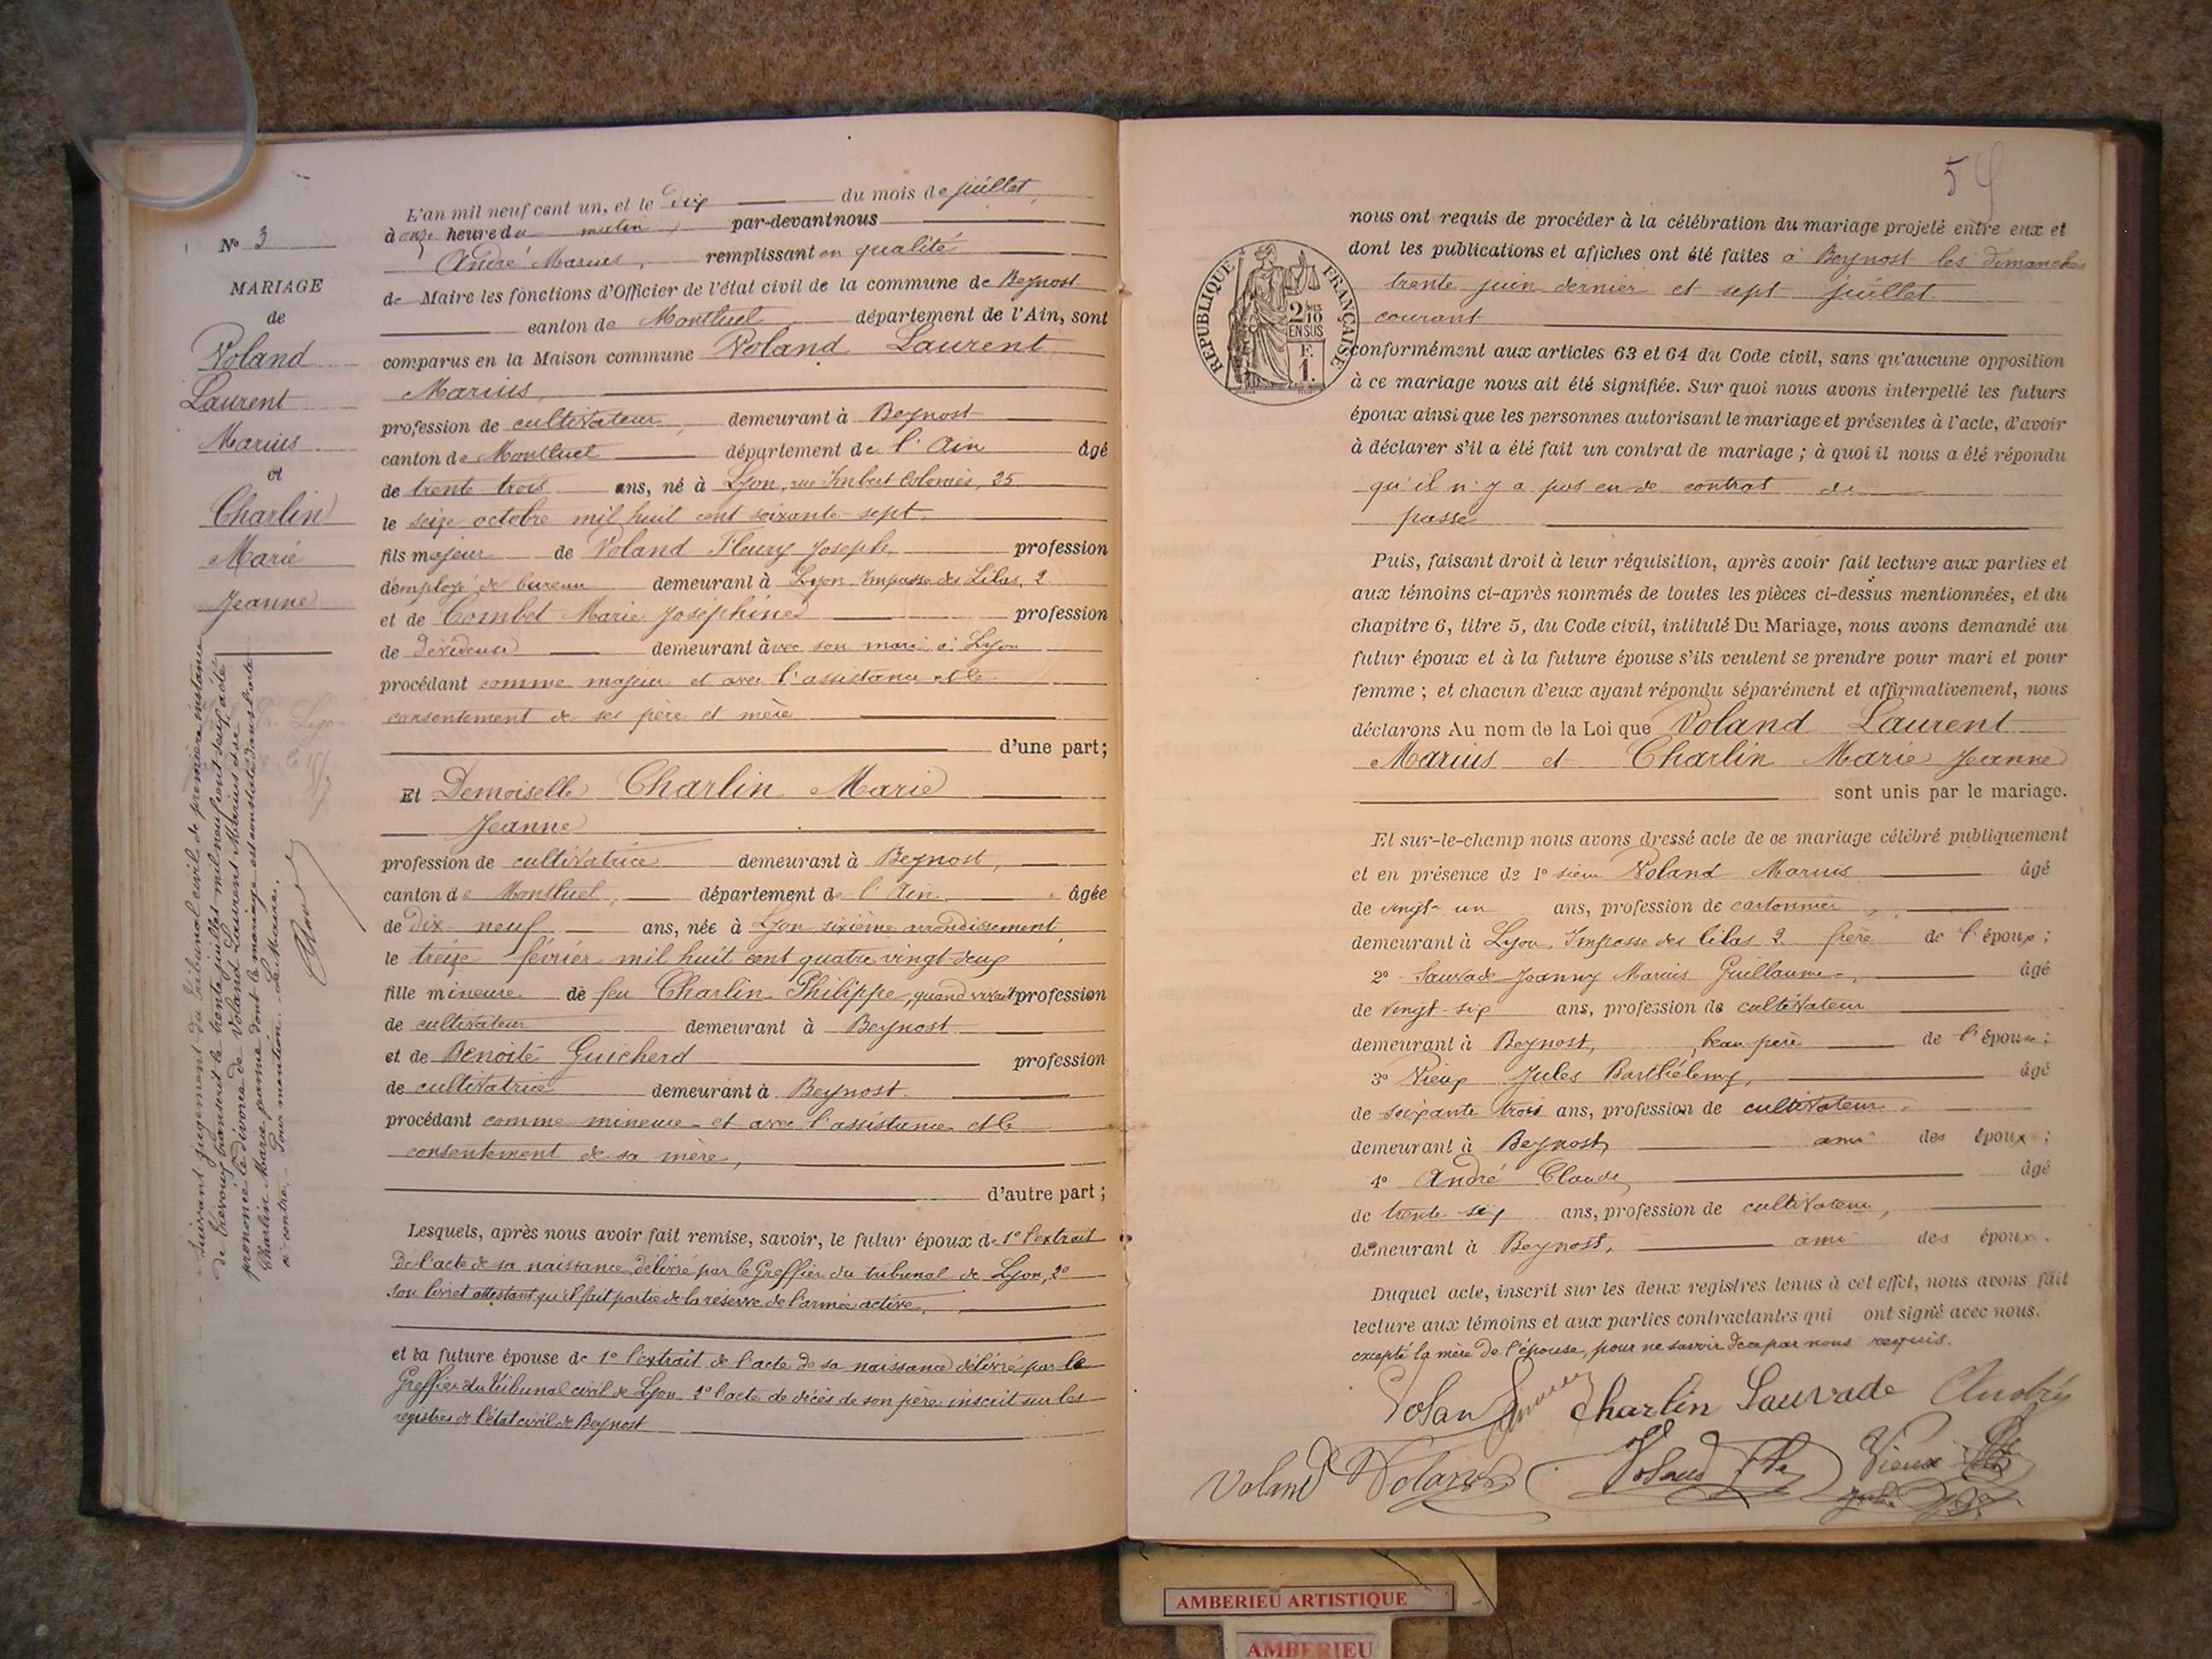 N° 3
MARIAGE
de
Voland
Laurent
Marius
et
Charlin
Marie
Jeanne
Suivant jugement du Tribunal civil de première instance
de Trévoux transcrit le trente juillet mil neuf cent
prononcé le divorce de Voland Laurent Marius et de
Charlin Marie Jeanne dont le mariage est constaté dans l'acte
ci-contre. Pour mention. Le Maire.
L'an mil neuf cent un, et le dix du mois de juillet,
à onze heure du matin, par-devant nous
André Marius, remplissant en qualité
de Maire les fonctions d'Officier de l'état civil de la commune de Beynost
canton de Montluel département de l'Ain, sont
comparus en la Maison commune Voland Laurent
Marius,
profession de cultivateur, demeurant à Beynost
canton de Montluel département de l'Ain âgé
de trente trois ans, né à Lyon, rue Imbert Colomès, 25
le seize octobre mil huit cent soixante-sept.
fils majeur de Voland Fleury Joseph, profession
d'employé de bureau demeurant à Lyon Impasse des Lilas, 2
et de Combet Marie Joséphine profession
de dévideuse demeurant avec son mari à Lyon
procédant comme majeur et avec l'assistance et le
consentement de ses père et mère
d'une part;
Et Demoiselle Charlin Marie
Jeanne
profession de cultivatrice demeurant à Beynost,
canton de Montluel, département de l'Ain âgée
de dix-neuf ans, née à Lyon sixième arrondissement,
le treize février mil huit cent quatre vingt deux
fille mineure de feu Charlin Philippe, quand vivait profession
de cultivateur demeurant à Beynost
et de Benoîte Guicherd profession
de cultivatrice demeurant à Beynost.
procédant comme mineure et avec l'assistance et le
consentement de sa mère,
d'autre part;
Lesquels, après nous avoir fait remise, savoir, le futur époux de 1° l'extrait
de l'acte de sa naissance délivré par le Greffier du tribunal de Lyon, 2°
son livret attestant qu'il fait partie de la réserve de l'armée active,
et la future épouse de 1° l'extrait de l'acte de sa naissance délivré par le
Greffier du Tribunal civil de Lyon 2° l'acte de décès de son père inscrit sur les
registres de l'état civil de Beynost
RÉPUBLIQUE FRANÇAISE
2/10
EN SUS
F.
1.
nous ont requis de procéder à la célébration du mariage projeté entre eux et
dont les publications et affiches ont été faites à Beynost les dimanches
trente juin dernier et sept juillet
courant
conformément aux articles 63 et 64 du Code civil, sans qu'aucune opposition
à ce mariage nous ait été signifiée. Sur quoi nous avons interpellé les futurs
époux ainsi que les personnes autorisant le mariage et présentes à l'acte, d'avoir
à déclarer s'il a été fait un contrat de mariage ; à quoi il nous a été répondu
qu'il n'y a pas eu de contrat de
passé
Puis, faisant droit à leur réquisition, après avoir fait lecture aux parties et
aux témoins ci-après nommés de toutes les pièces ci-dessus mentionnées, et du
chapitre 6, titre 5, du Code civil, intitulé Du Mariage, nous avons demandé au
futur époux et à la future épouse s'ils veulent se prendre pour mari et pour
femme ; et chacun d'eux ayant répondu séparément et affirmativement, nous
déclarons Au nom de la Loi que Voland Laurent
Marius et Charlin Marie Jeanne
sont unis par le mariage.
Et sur-le-champ nous avons dressé acte de ce mariage célébré publiquement
et en présence de 1° sieur Voland Marius âgé
de vingt-un ans, profession de cartonnier,
demeurant à Lyon, Impasse des lilas 2 frère de l'époux;
2° Sauvade Joanny Marius Guillaume, âgé
de vingt-six ans, profession de cultivateur
demeurant à Beynost, beau-père de l'épouse;
3° Vieux Jules Barthélemy, âgé
de soixante trois ans, profession de cultivateur
demeurant à Beynost, ami des époux;
4° André Claude, âgé
de trente six ans, profession de cultivateur,
demeurant à Beynost, ami des époux.
Duquel acte, inscrit sur les deux registres tenus à cet effet, nous avons fait
lecture aux témoins et aux parties contractantes qui ont signé avec nous.
excepté la mère de l'épouse, pour ne savoir de ce par nous requis.
Charlin Sauvade André
Voland Voland Voland Vieux
AMBERIEU ARTISTIQUE
AMBERIEU